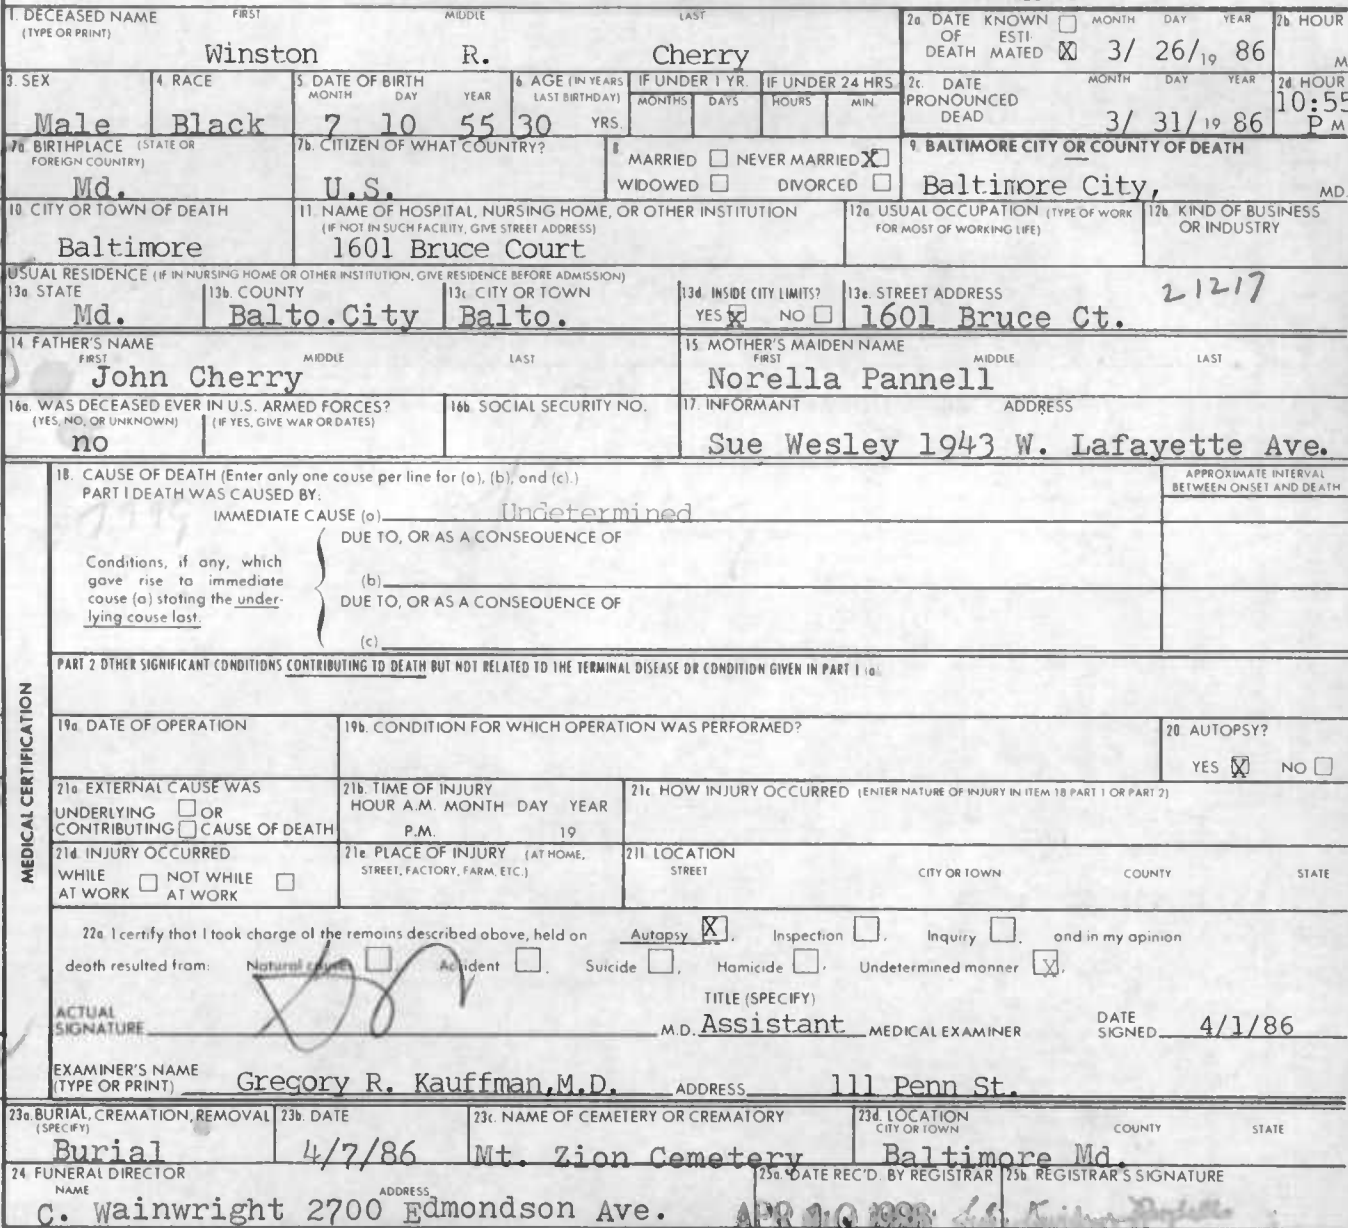 1. DECEASED NAME FIRST MIDDLE LAST
(TYPE OR PRINT)
Winston R. Cherry
2a. DATE OF DEATH KNOWN ESTIMATED X MONTH DAY YEAR
3/ 26/ 19 86
2b. HOUR
M
3. SEX
Male
4. RACE
Black
5. DATE OF BIRTH
MONTH DAY YEAR
7 10 55
6. AGE (IN YEARS LAST BIRTHDAY)
30 YRS.
IF UNDER 1 YR.
MONTHS DAYS
IF UNDER 24 HRS
HOURS MIN.
2c. DATE PRONOUNCED DEAD MONTH DAY YEAR
3/ 31/ 19 86
2d. HOUR
10:55
P M
7a. BIRTHPLACE (STATE OR FOREIGN COUNTRY)
Md.
7b. CITIZEN OF WHAT COUNTRY?
U.S.
8. MARRIED NEVER MARRIED X
WIDOWED DIVORCED
9. BALTIMORE CITY OR COUNTY OF DEATH
Baltimore City, MD.
10. CITY OR TOWN OF DEATH
Baltimore
11. NAME OF HOSPITAL, NURSING HOME, OR OTHER INSTITUTION
(IF NOT IN SUCH FACILITY, GIVE STREET ADDRESS)
1601 Bruce Court
12a. USUAL OCCUPATION (TYPE OF WORK FOR MOST OF WORKING LIFE)
12b. KIND OF BUSINESS OR INDUSTRY
USUAL RESIDENCE (IF IN NURSING HOME OR OTHER INSTITUTION, GIVE RESIDENCE BEFORE ADMISSION)
13a. STATE
Md.
13b. COUNTY
Balto.City
13c. CITY OR TOWN
Balto.
13d. INSIDE CITY LIMITS?
YES X NO
13e. STREET ADDRESS
1601 Bruce Ct.
21217
14. FATHER'S NAME
FIRST MIDDLE LAST
John Cherry
15. MOTHER'S MAIDEN NAME
FIRST MIDDLE LAST
Norella Pannell
16a. WAS DECEASED EVER IN U.S. ARMED FORCES?
(YES, NO, OR UNKNOWN) (IF YES, GIVE WAR OR DATES)
no
16b. SOCIAL SECURITY NO.
17. INFORMANT ADDRESS
Sue Wesley 1943 W. Lafayette Ave.
MEDICAL CERTIFICATION
18. CAUSE OF DEATH (Enter only one cause per line for (a), (b), and (c).)
PART I DEATH WAS CAUSED BY:
IMMEDIATE CAUSE (a) Undetermined
APPROXIMATE INTERVAL BETWEEN ONSET AND DEATH
DUE TO, OR AS A CONSEQUENCE OF
Conditions, if any, which
gave rise to immediate
cause (a) stating the under-
lying cause last.
(b)
DUE TO, OR AS A CONSEQUENCE OF
(c)
PART 2 OTHER SIGNIFICANT CONDITIONS CONTRIBUTING TO DEATH BUT NOT RELATED TO THE TERMINAL DISEASE OR CONDITION GIVEN IN PART I (a)
19a. DATE OF OPERATION
19b. CONDITION FOR WHICH OPERATION WAS PERFORMED?
20. AUTOPSY?
YES X NO
21a. EXTERNAL CAUSE WAS
UNDERLYING OR
CONTRIBUTING CAUSE OF DEATH
21b. TIME OF INJURY
HOUR A.M. MONTH DAY YEAR
P.M. 19
21c. HOW INJURY OCCURRED (ENTER NATURE OF INJURY IN ITEM 18 PART 1 OR PART 2)
21d. INJURY OCCURRED
WHILE AT WORK NOT WHILE AT WORK
21e. PLACE OF INJURY (AT HOME, STREET, FACTORY, FARM, ETC.)
21f. LOCATION
STREET CITY OR TOWN COUNTY STATE
22a. I certify that I took charge of the remains described above, held on Autopsy X, Inspection, Inquiry, and in my opinion
death resulted from: Natural cause, Accident, Suicide, Homicide, Undetermined manner X.
ACTUAL SIGNATURE
M.D.
TITLE (SPECIFY)
Assistant MEDICAL EXAMINER
DATE SIGNED 4/1/86
EXAMINER'S NAME (TYPE OR PRINT) Gregory R. Kauffman,M.D. ADDRESS 111 Penn St.
23a. BURIAL, CREMATION, REMOVAL (SPECIFY)
Burial
23b. DATE
4/7/86
23c. NAME OF CEMETERY OR CREMATORY
Mt. Zion Cemetery
23d. LOCATION
CITY OR TOWN COUNTY STATE
Baltimore Md.
24. FUNERAL DIRECTOR
NAME ADDRESS
C. Wainwright 2700 Edmondson Ave.
25a. DATE REC'D. BY REGISTRAR
APR 10
25b. REGISTRAR'S SIGNATURE